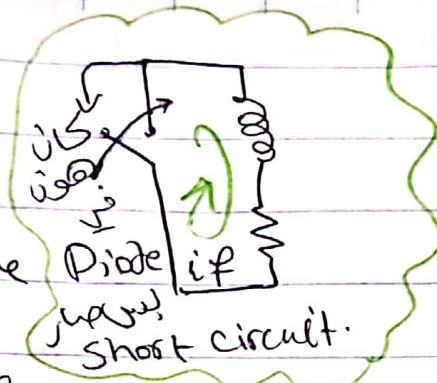 كان
هون
Diode if
بس صار
short circuit.